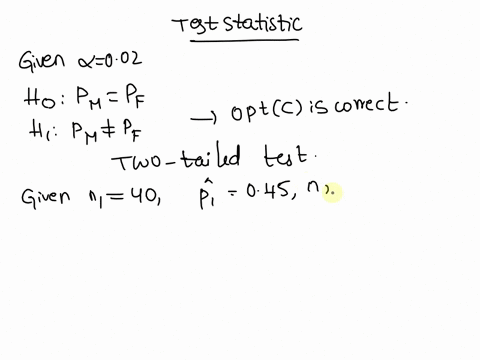 Test Statistic
Given α=0.02
H0: PM = PF
→ opt(C) is correct.
H1: PM ≠ PF
TWO-tailed test.
Given n1 = 40, p̂1 = 0.45, n2